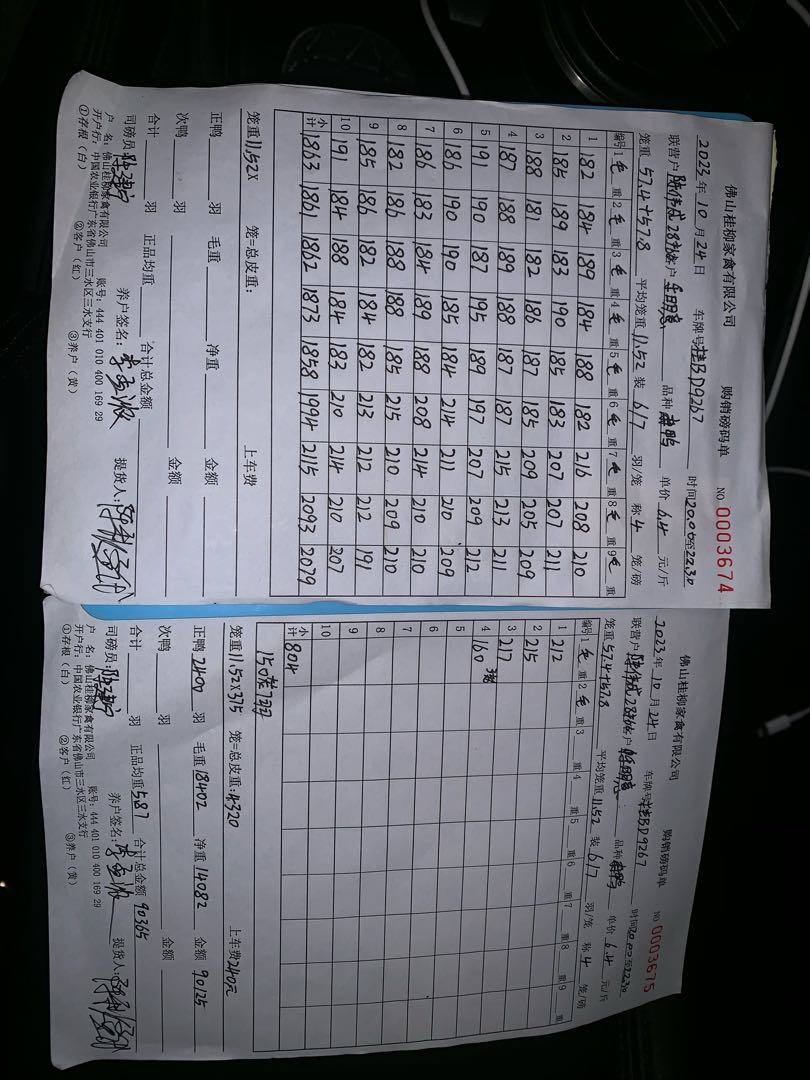 佛山桂柳家禽有限公司 购销磅码单 NO 0003674
2023年10月24日 车牌号桂BD9267 时间20.00至22.30
联营户 客户 品种 单价6.4元/斤
笼重57.4+57.8 平均笼重11.52 装6/7羽/笼 称4笼/磅
编号 1毛重 2毛重 3毛重 4毛重 5毛重 6毛重 7毛重 8毛重 9毛重
1 182 184 189 184 188 182 216 208 210
2 185 189 183 190 185 183 207 207 211
3 188 181 182 186 187 185 209 205 209
4 187 188 189 188 187 187 215 213 211
5 191 190 187 195 189 197 207 209 212
6 186 190 190 185 184 214 211 210 209
7 186 183 184 189 188 208 214 210 210
8 182 186 188 188 185 215 210 209 210
9 185 186 182 184 182 213 212 212 191
10 191 184 188 184 183 210 214 210 207
小计 1863 1861 1862 1873 1858 1994 2115 2093 2079
笼重11.52X 笼=总皮重: 上车费
正鸭 羽 毛重 净重 金额
次鸭 羽 金额
合计 羽 正品均重 合计总金额
司磅员: 养户签名: 提货人:
户 名:佛山桂柳家禽有限公司 账号:444 401 010 400 169 29
开户行:中国农业银行广东省佛山市三水区三水支行
①存根(白) ②客户(红) ③养户(黄)
佛山桂柳家禽有限公司 购销磅码单 NO 0003675
2023年10月24日 车牌号桂BD9267 时间20.00至22.30
联营户 客户 品种 单价6.4元/斤
笼重57.4+57.8 平均笼重11.52 装6/7羽/笼 称4笼/磅
编号 1毛重 2毛重 3 重 4 重 5 重 6 重 7 重 8 重 9 重
1 212
2 215
3 217
4 160
5
6
7
8
9
10
小计 804
笼重11.52X375 笼=总皮重:4320 上车费240元
正鸭2400羽 毛重18402 净重14082 金额90125
次鸭 羽 金额
合计 羽 正品均重5.87 合计总金额90365
司磅员: 养户签名: 提货人:
户 名:佛山桂柳家禽有限公司 账号:444 401 010 400 169 29
开户行:中国农业银行广东省佛山市三水区三水支行
①存根(白) ②客户(红) ③养户(黄)